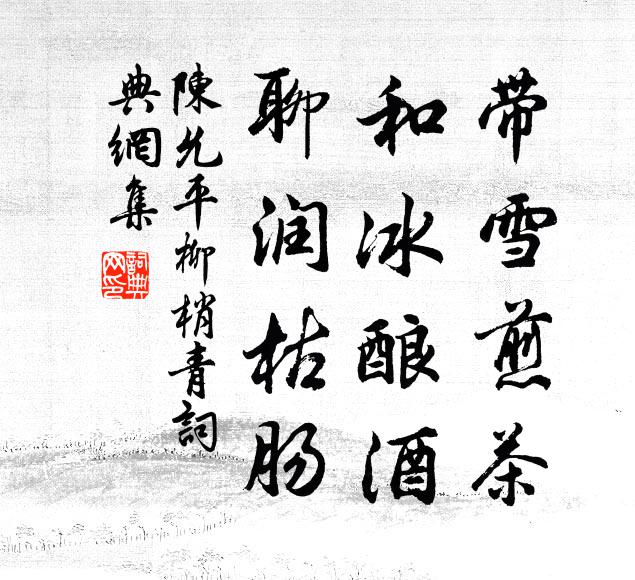 带雪煎茶
和冰酿酒
聊润枯肠
陳允平柳梢青詞
典網集
詞典網印